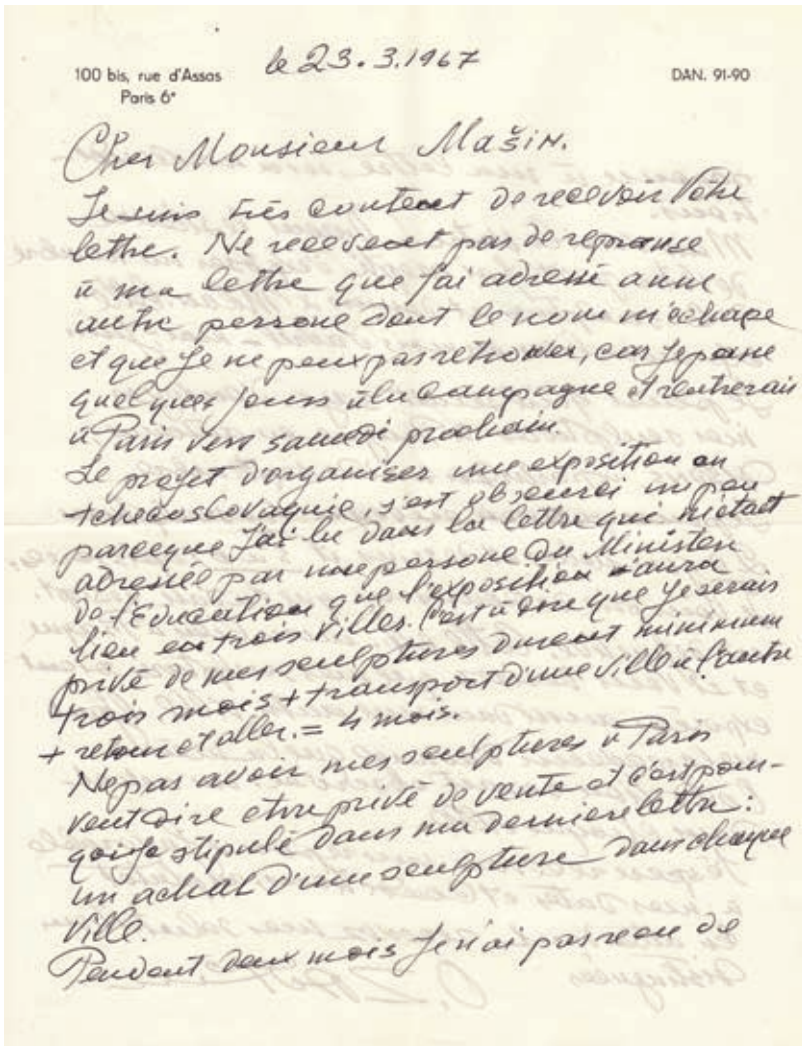 100 bis, rue d'Assas
Paris 6e
le 23.3.1967
DAN. 91-90
Cher Monsieur Mašin.
Je suis très content de recevoir Votre
lettre. Ne recevent pas de reponse
à ma lettre que j'ai adressé a une
autre persone dont le nom m'échape
et que je ne peux pas retrouver, car je passe
quelques jours à la Campagne et rentrerais
à Paris vers samedi prochain
Le projet d'organiser une exposition en
tchecoslovaquie, s'est obscurci un peu
parceque J'ai lu dans la lettre qui m'était
adressée par une persone du Ministère
de l'Education que l'exposition aura
lieu en trois Villes. C'est à dire que je serais
privé de mes sculptures durent minimum
trois mois + transport d'une ville à l'autre
+ retour et aller. = 4 mois.
Ne pas avoir mes sculptures à Paris
veut dire etre privé de vente et c'est pour-
qoi je stipulé dans ma derniere lettre:
un achat d'une sculpture dans chaque
Ville.
Pendent deux mois je n'ai pas reçu de